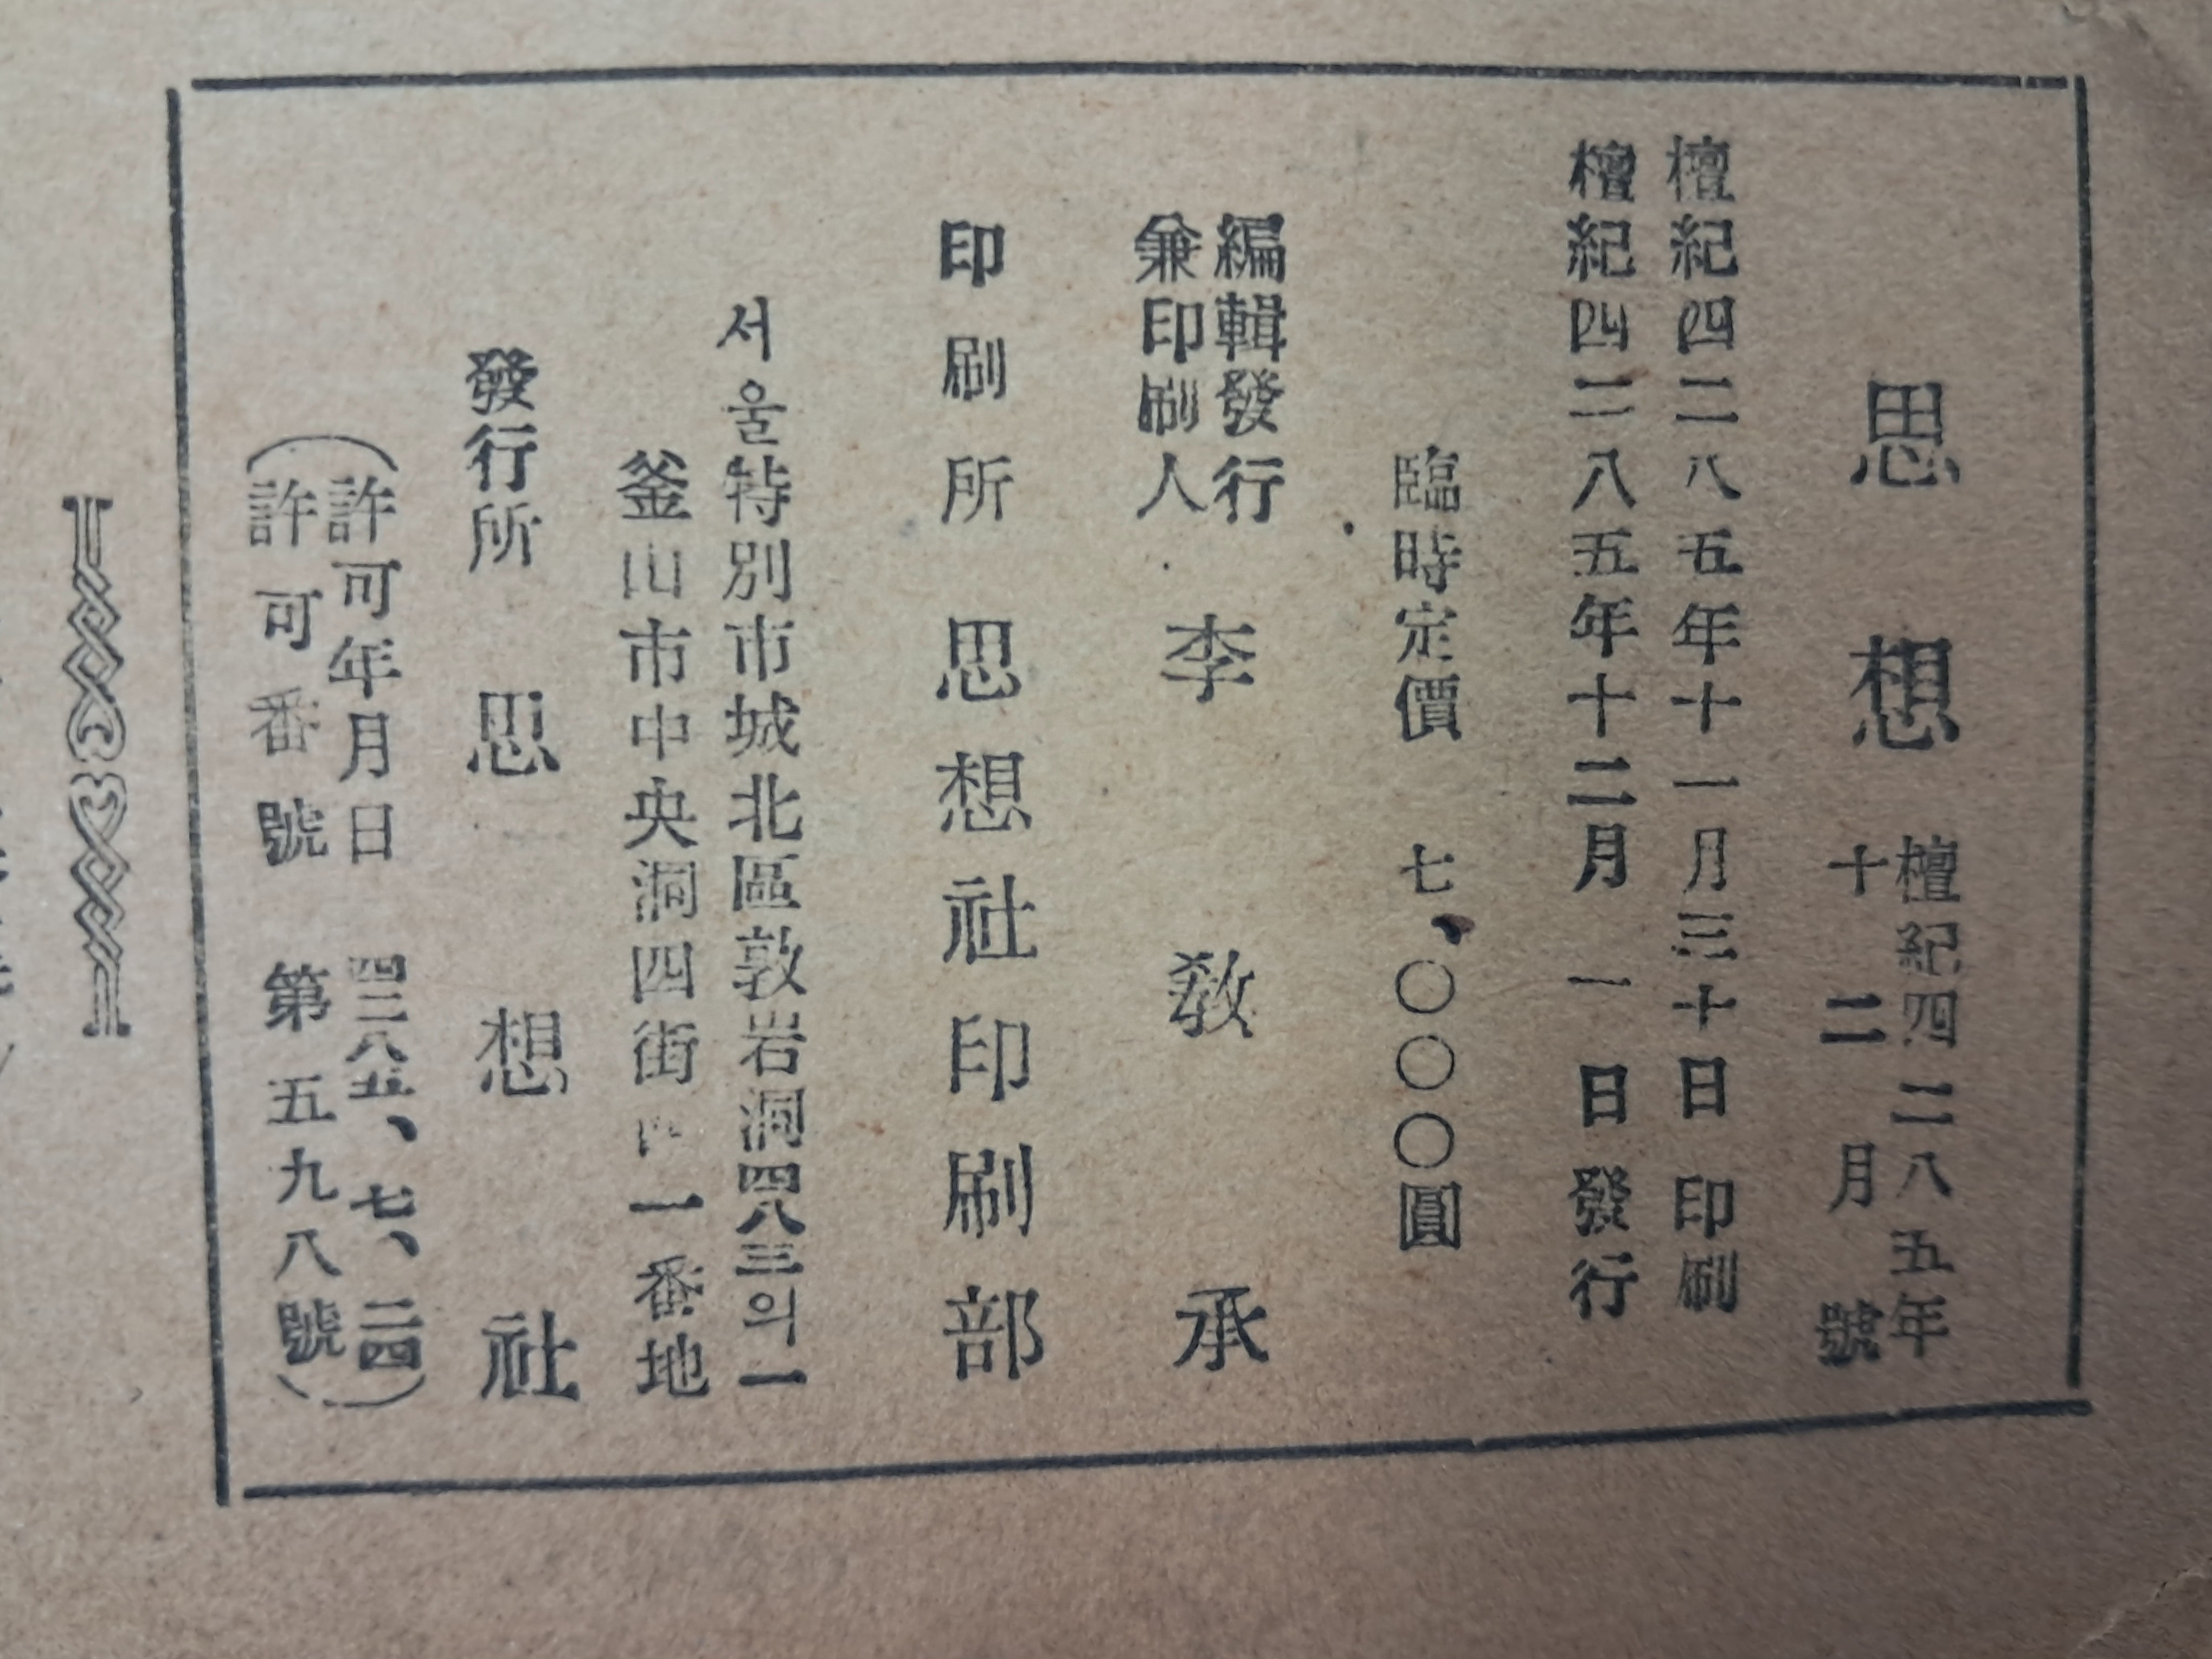 思想
檀紀四二八五年
十二月號
檀紀四二八五年十一月三十日印刷
檀紀四二八五年十二月一日發行
臨時定價 七、〇〇〇圓
編輯發行
兼印刷人 李教承
印刷所 思想社印刷部
서울特別市城北區敦岩洞四八三의一
釜山市中央洞四街 一番地
發行所 思想社
(許可年月日 四二八五、七、二四)
(許可番號 第五九八號)